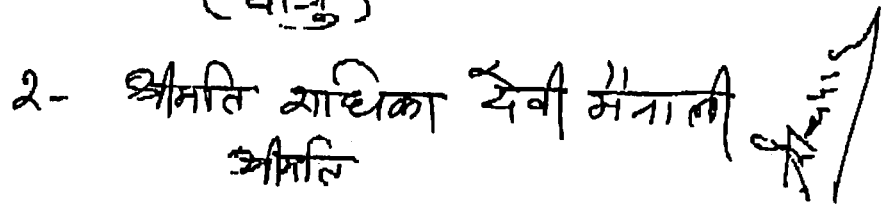 २- श्रीमति राधिका देवी मैनाली
श्रीमति